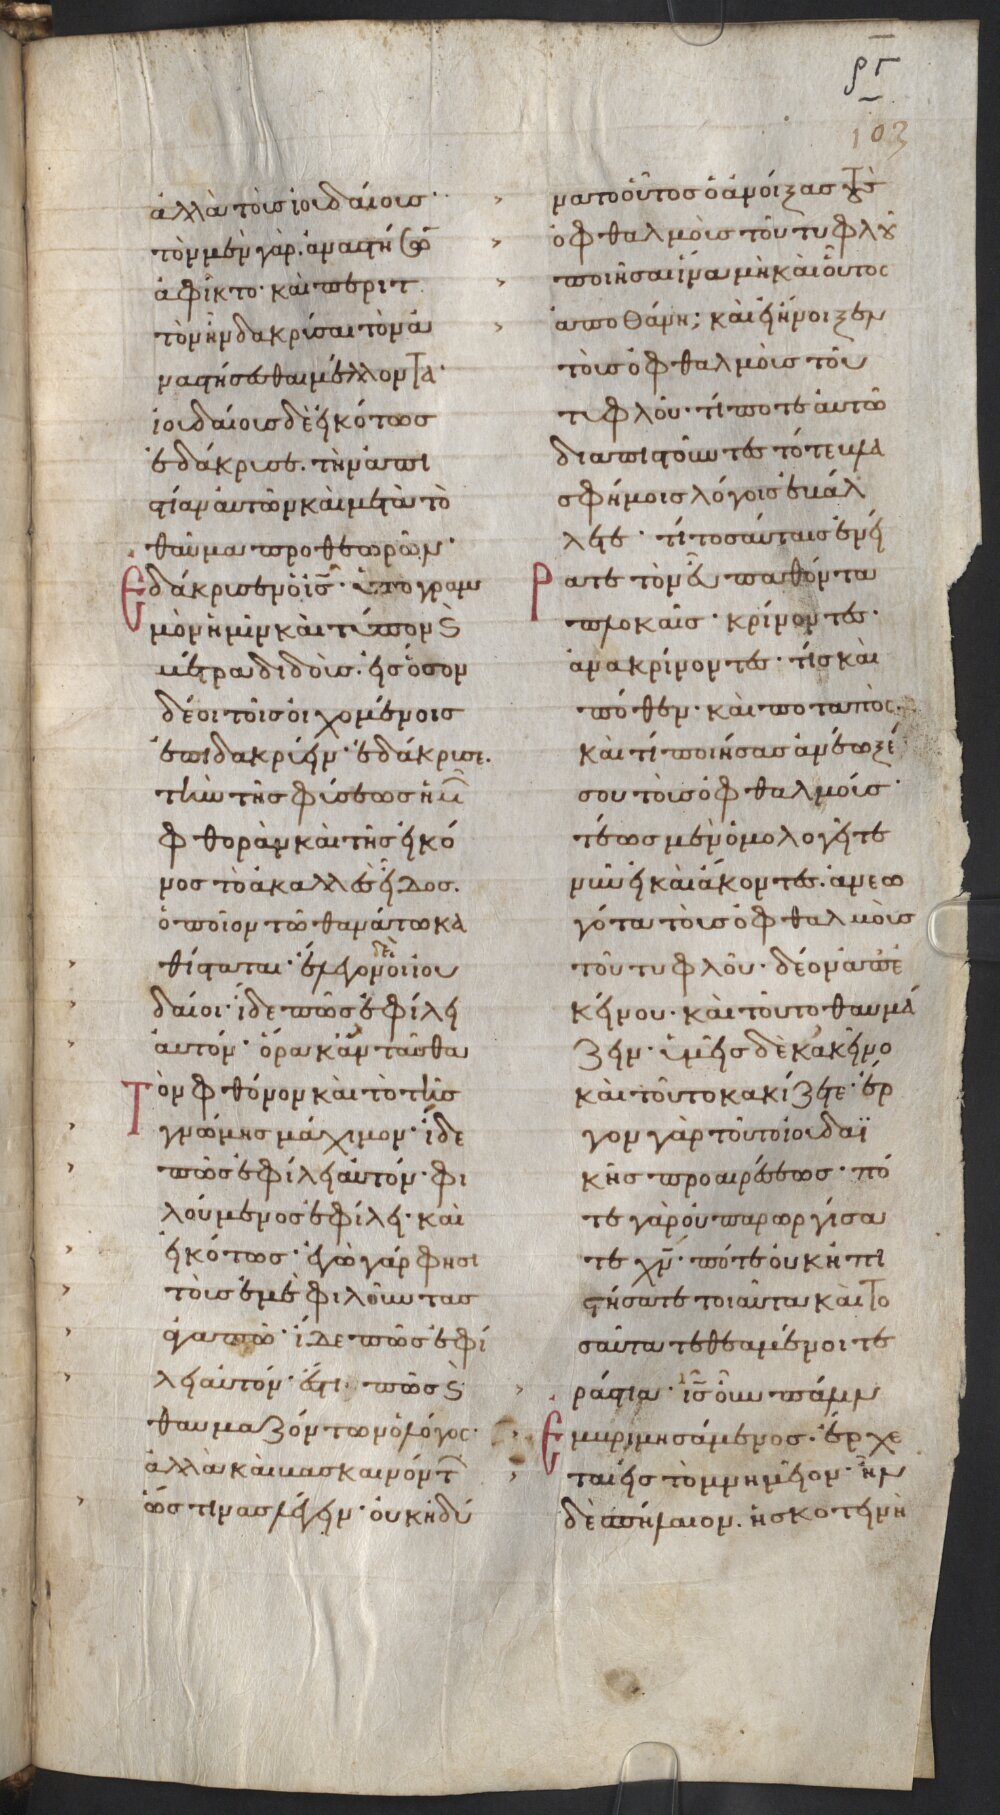 ἀλλὰ τοῖς ἰουδαίοις·
τὸν μὲν γὰρ. ἀναστήσων
ἀφῖκτο· καὶ περιτ
τὸν ἦν δακρύσαι τὸν ἀ
ναστήσεσθαι μέλλοντα·
ἰουδαίοις δὲ εἰκότως
ἐδάκρυσε. τὴν ἀπι
στίαν αὐτῶν καὶ μετὰ τὸ
θαῦμα προθεωρῶν·
Ἐδάκρυσεν ὁ ἰς̅· ὑπογραμ
μὸν ἡμῖν καὶ τύπον καὶ
μέτρα διδοὺς. εἰς ὅσον
δέοι τοῖς οἰχομένοις
ἐπιδακρύειν· ἐδάκρυσε.
τὴν τῆς φύσεως ἡμῶν
φθορὰν καὶ τῆς εἰκό
νος τὸ ἀκαλλὲς εἶδος.
ὁποῖον τῶ θανάτω κα
θίσταται· ἔλεγον δὲ οἱ ἰου
δαῖοι· ἴδε πῶς ἐφίλει
αὐτόν· ὅρα κἀνταῦθα
Τὸν φθόνον καὶ τὸ τῆς
γνώμης μάχιμον· ἴδε
πῶς ἐφίλει αὐτόν· φι
λούμενος ἐφίλει· καὶ
εἰκότως· ἐγὼ γάρ φησι
τοὺς ἐμὲ φιλοῦντας
ἀγαπῶ· ἴδε πῶς ἐφί
λει αὐτόν· ἔστι πῶς καὶ
θαυμαζόντων ὁ λόγος·
ἀλλὰ καὶ βασκαινόντων
ὥς τινας λέγειν· οὐκ ἠδύ
ργ
103
νατο οὗτος ὁ ἀνοίξας τοὺς
ὀφθαλμοὺς τοῦ τυφλοῦ
ποιῆσαι ἵνα μὴ καὶ οὗτος
ἀποθάνη; καὶ εἰ ἤνοιξεν
τοὺς ὀφθαλμοὺς τοῦ
τυφλοῦ· τί ποτε αὐτῶ
διαπιστοῦντες τότε βλα
σφήμοις λόγοις ἐβάλ
λετε· τί τοσαύταις ἐπεί
Ρατε τὸν εὖ παθόντα
πλοκαῖς· κρίνοντες·
ἀνακρίνοντες· τίς καὶ
πόθεν· καὶ ποταπὸς·
καὶ τί ποιήσας ἀνέωξέ
σου τοὺς ὀφθαλμούς·
τέως μὲν ὁμολογεῖτε
νυνὶ καὶ ἄκοντες. ἀνεω
γότα τοὺς ὀφθαλμοὺς
τοῦ τυφλοῦ· δέον ἀπ' ἐ
κείνου· καὶ τοῦτο θαυμά
ζειν· ὑμεῖς δὲ κἀκεῖνο
καὶ τοῦτο κακίζετε· ἔρ
γον γὰρ τοῦτο ἰουδαϊ
κῆς προαιρέσεως· πό
τε γὰρ οὐ παρωργίσα
τε χν̅· πότε οὐκ ἠπι
στήσατε τοιαῦτα καὶ το
σαῦτα τεθεαμένοι τε
ράστια· ἰς̅ οὖν πάλιν
Ἐμβριμησάμενος· ἔρχε
ται εἰς τὸ μνημεῖον· ἦν
δὲ σπήλαιον. ἡ σκοτεινὴ